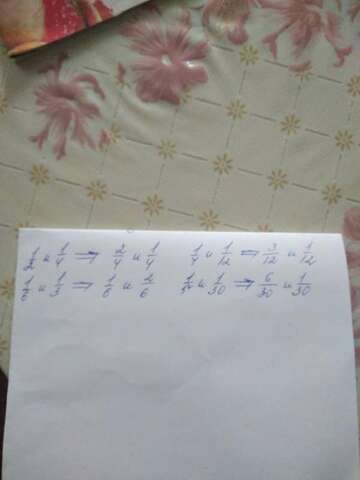 1/2 и 1/4 ⇒ 2/4 и 1/4 1/4 и 1/12 ⇒ 3/12 и 1/12
1/6 и 1/3 ⇒ 1/6 и 2/6 1/5 и 1/30 ⇒ 6/30 и 1/30